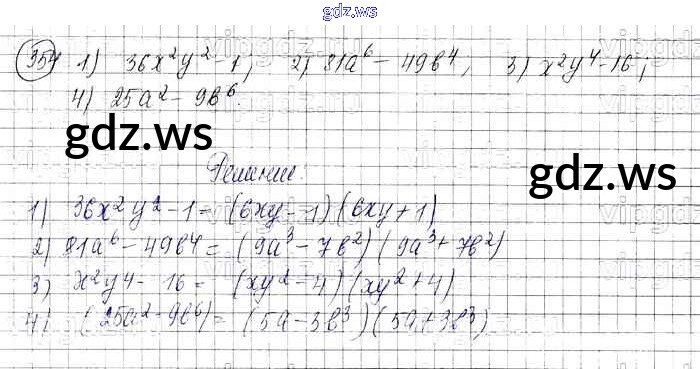 gdz.ws
354 1) 36x²y² - 1; 2) 81a⁶ - 49b⁴; 3) x²y⁴ - 16;
4) 25a² - 9b⁶.
gdz.ws
gdz.ws
Решение:
1) 36x²y² - 1 = (6xy - 1)(6xy + 1)
2) 81a⁶ - 49b⁴ = (9a³ - 7b²)(9a³ + 7b²)
3) x²y⁴ - 16 = (xy² - 4)(xy² + 4)
4) (25a² - 9b⁶) = (5a - 3b³)(5a + 3b³)